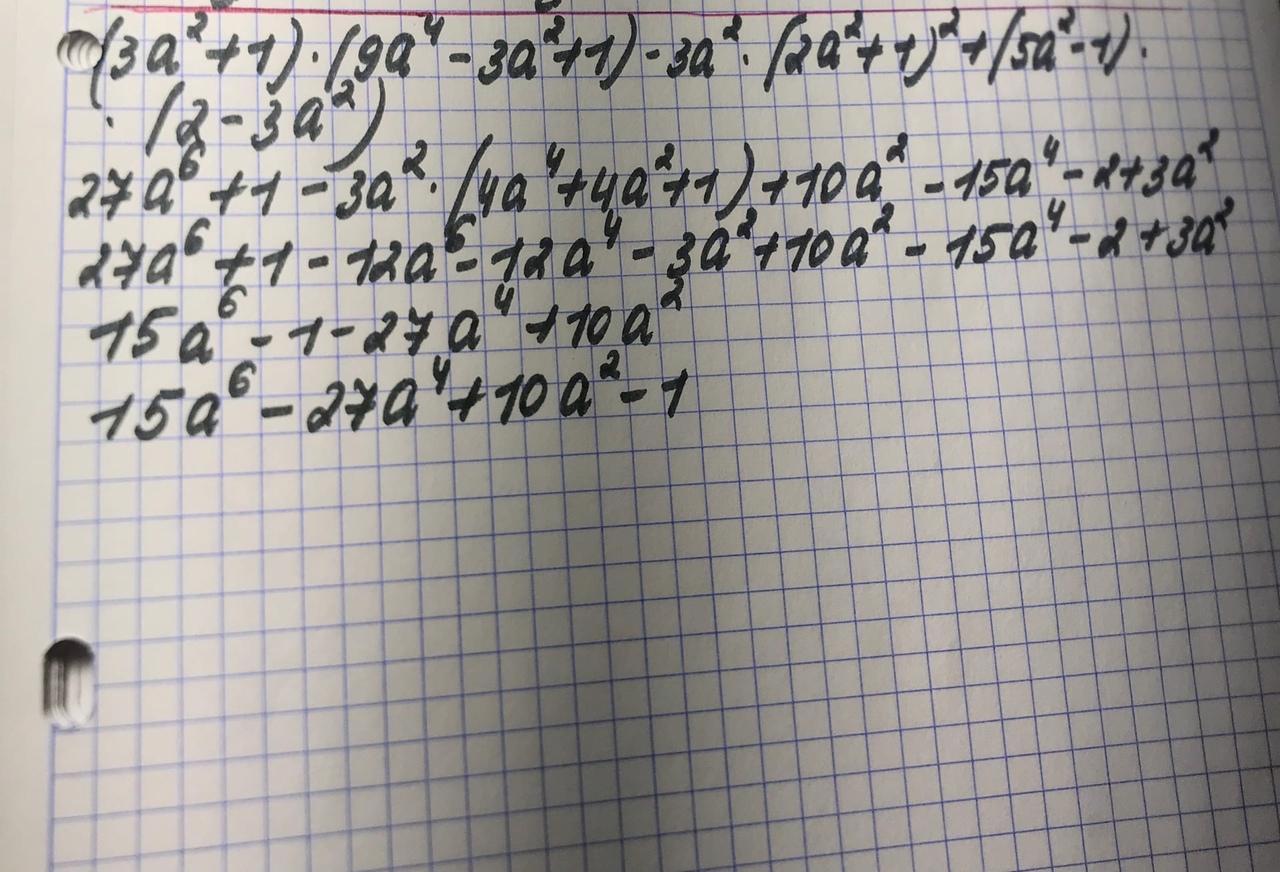 (3a²+1)·(9a⁴-3a²+1)-3a²·(2a²+1)²+(5a²-1)·
·(2-3a²)
27a⁶+1-3a²·(4a⁴+4a²+1)+10a²-15a⁴-2+3a²
27a⁶+1-12a⁶-12a⁴-3a²+10a²-15a⁴-2+3a²
15a⁶-1-27a⁴+10a²
15a⁶-27a⁴+10a²-1